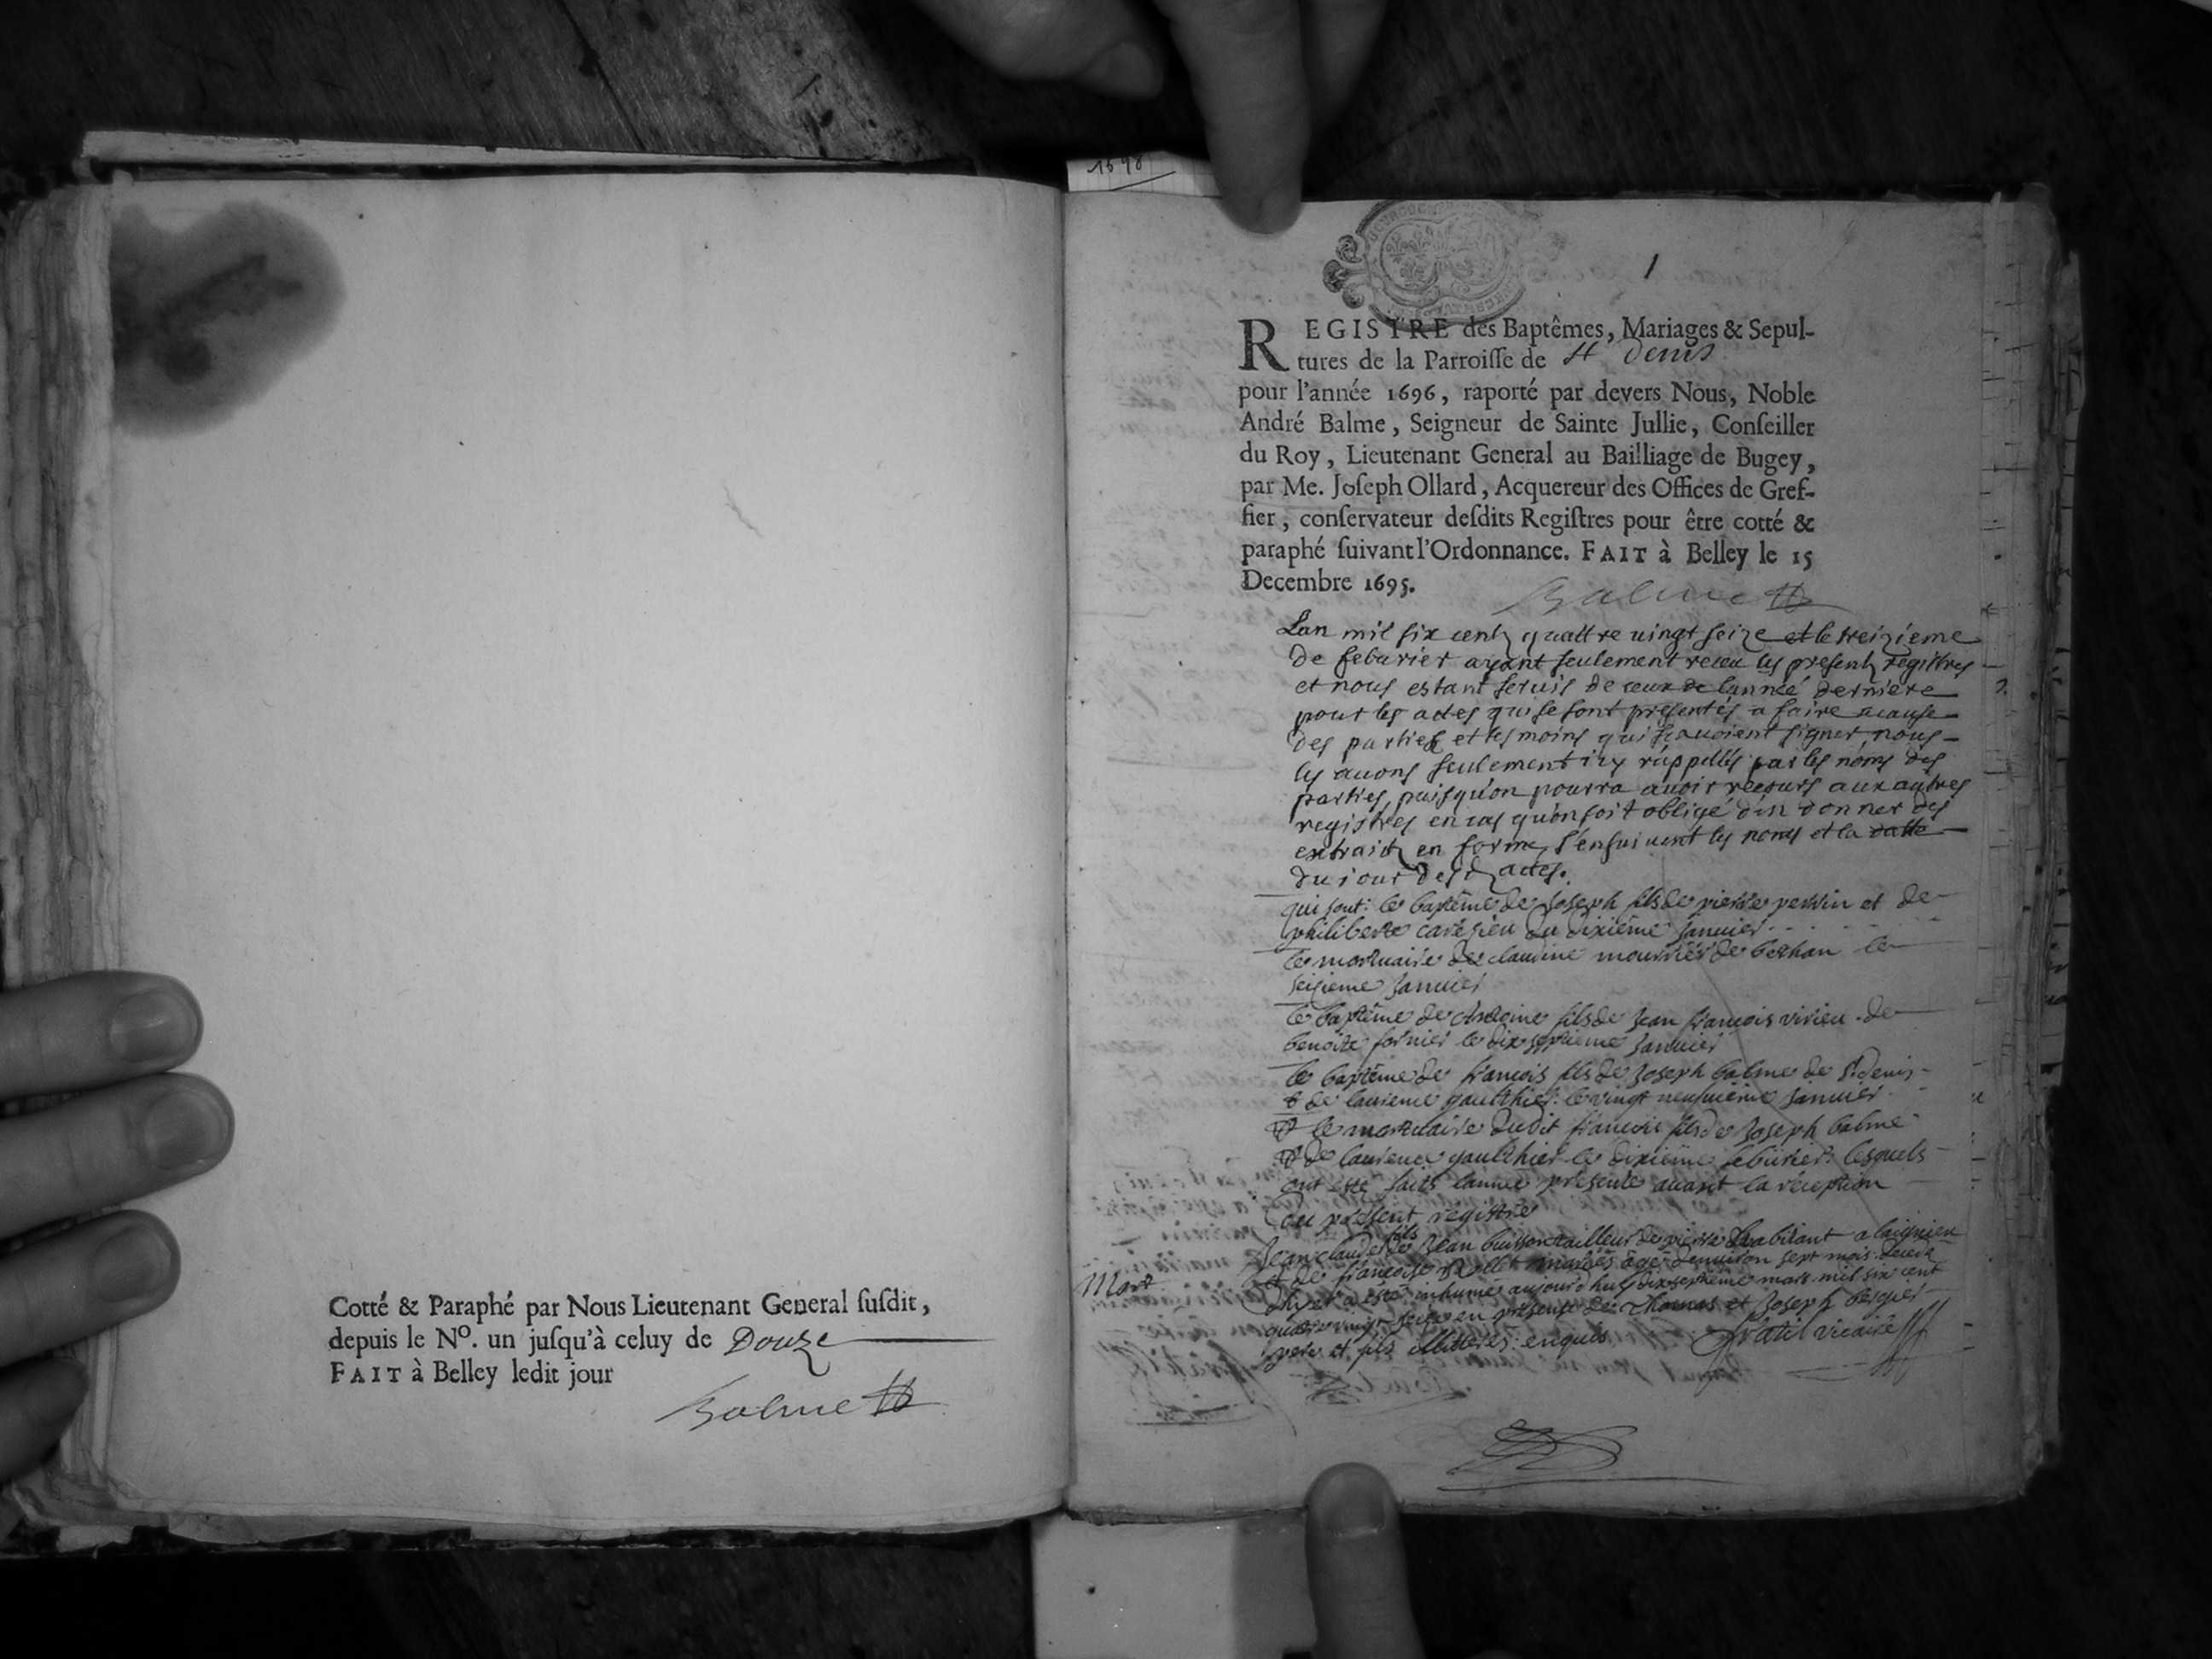 Cotté & Paraphé par Nous Lieutenant General ſuſdit,
depuis le No. un juſqu'à celuy de Douze
FAIT à Belley ledit jour
Balme
1
REGISTRE des Baptêmes, Mariages & Sepul-
tures de la Parroiſſe de St Denis
pour l'année 1696, raporté par devers Nous, Noble
André Balme, Seigneur de Sainte Jullie, Conſeiller
du Roy, Lieutenant General au Bailliage de Bugey,
par Me. Joſeph Ollard, Acquereur des Offices de Gref-
fier, conſervateur deſdits Regiſtres pour être cotté &
paraphé ſuivant l'Ordonnance. FAIT à Belley le 15
Decembre 1695.
Balme
Lan mil six cents quattre vingt seize et le treizieme
de feburier ayant seulement receu les presents registres
et nous estant seruis de ceux de lannée derniere
pour les actes qui se sont presentés a faire a cause
des parties et tesmoins qui scauoient signer, nous
les auons seulement icy rappellés par les noms des
parties, puisqu'on pourra auoir recours aux autres
registres en cas qu'on soit obligé d'en donner des
extraicts en forme, s'ensuiuent les noms et la datte
du jour desd actes.
qui sont: le baptême de Joseph fils de pierre perrin et de
philiberte du dixième Januier
le mortuaire de claudine mourrier de le
seizieme Januier
le baptême de Antoine fils de Jean francois virieu de
benoite fornier le dix septieme Januier
le baptême de francois fils de Joseph balme de St denis
& de laurence gaulthier le vingt neufuieme Januier
& le mortuaire dudit francois fils de Joseph balme
& de laurence gaulthier le dixieme feburier: lesquels
ont esté faits lannée presente auant la réception
du present registre
Mort
Jean claude fils de Jean buisson tailleur de pierre habitant a laignieu
et de francoise mariés âgé denuiron sept mois decedé
dhyer a esté inhumé aujourdhuy dixseptieme mars mil six cent
quatre vingt seize en presence de Thomas et Joseph
pere et fils illitteres: enquis vicaire